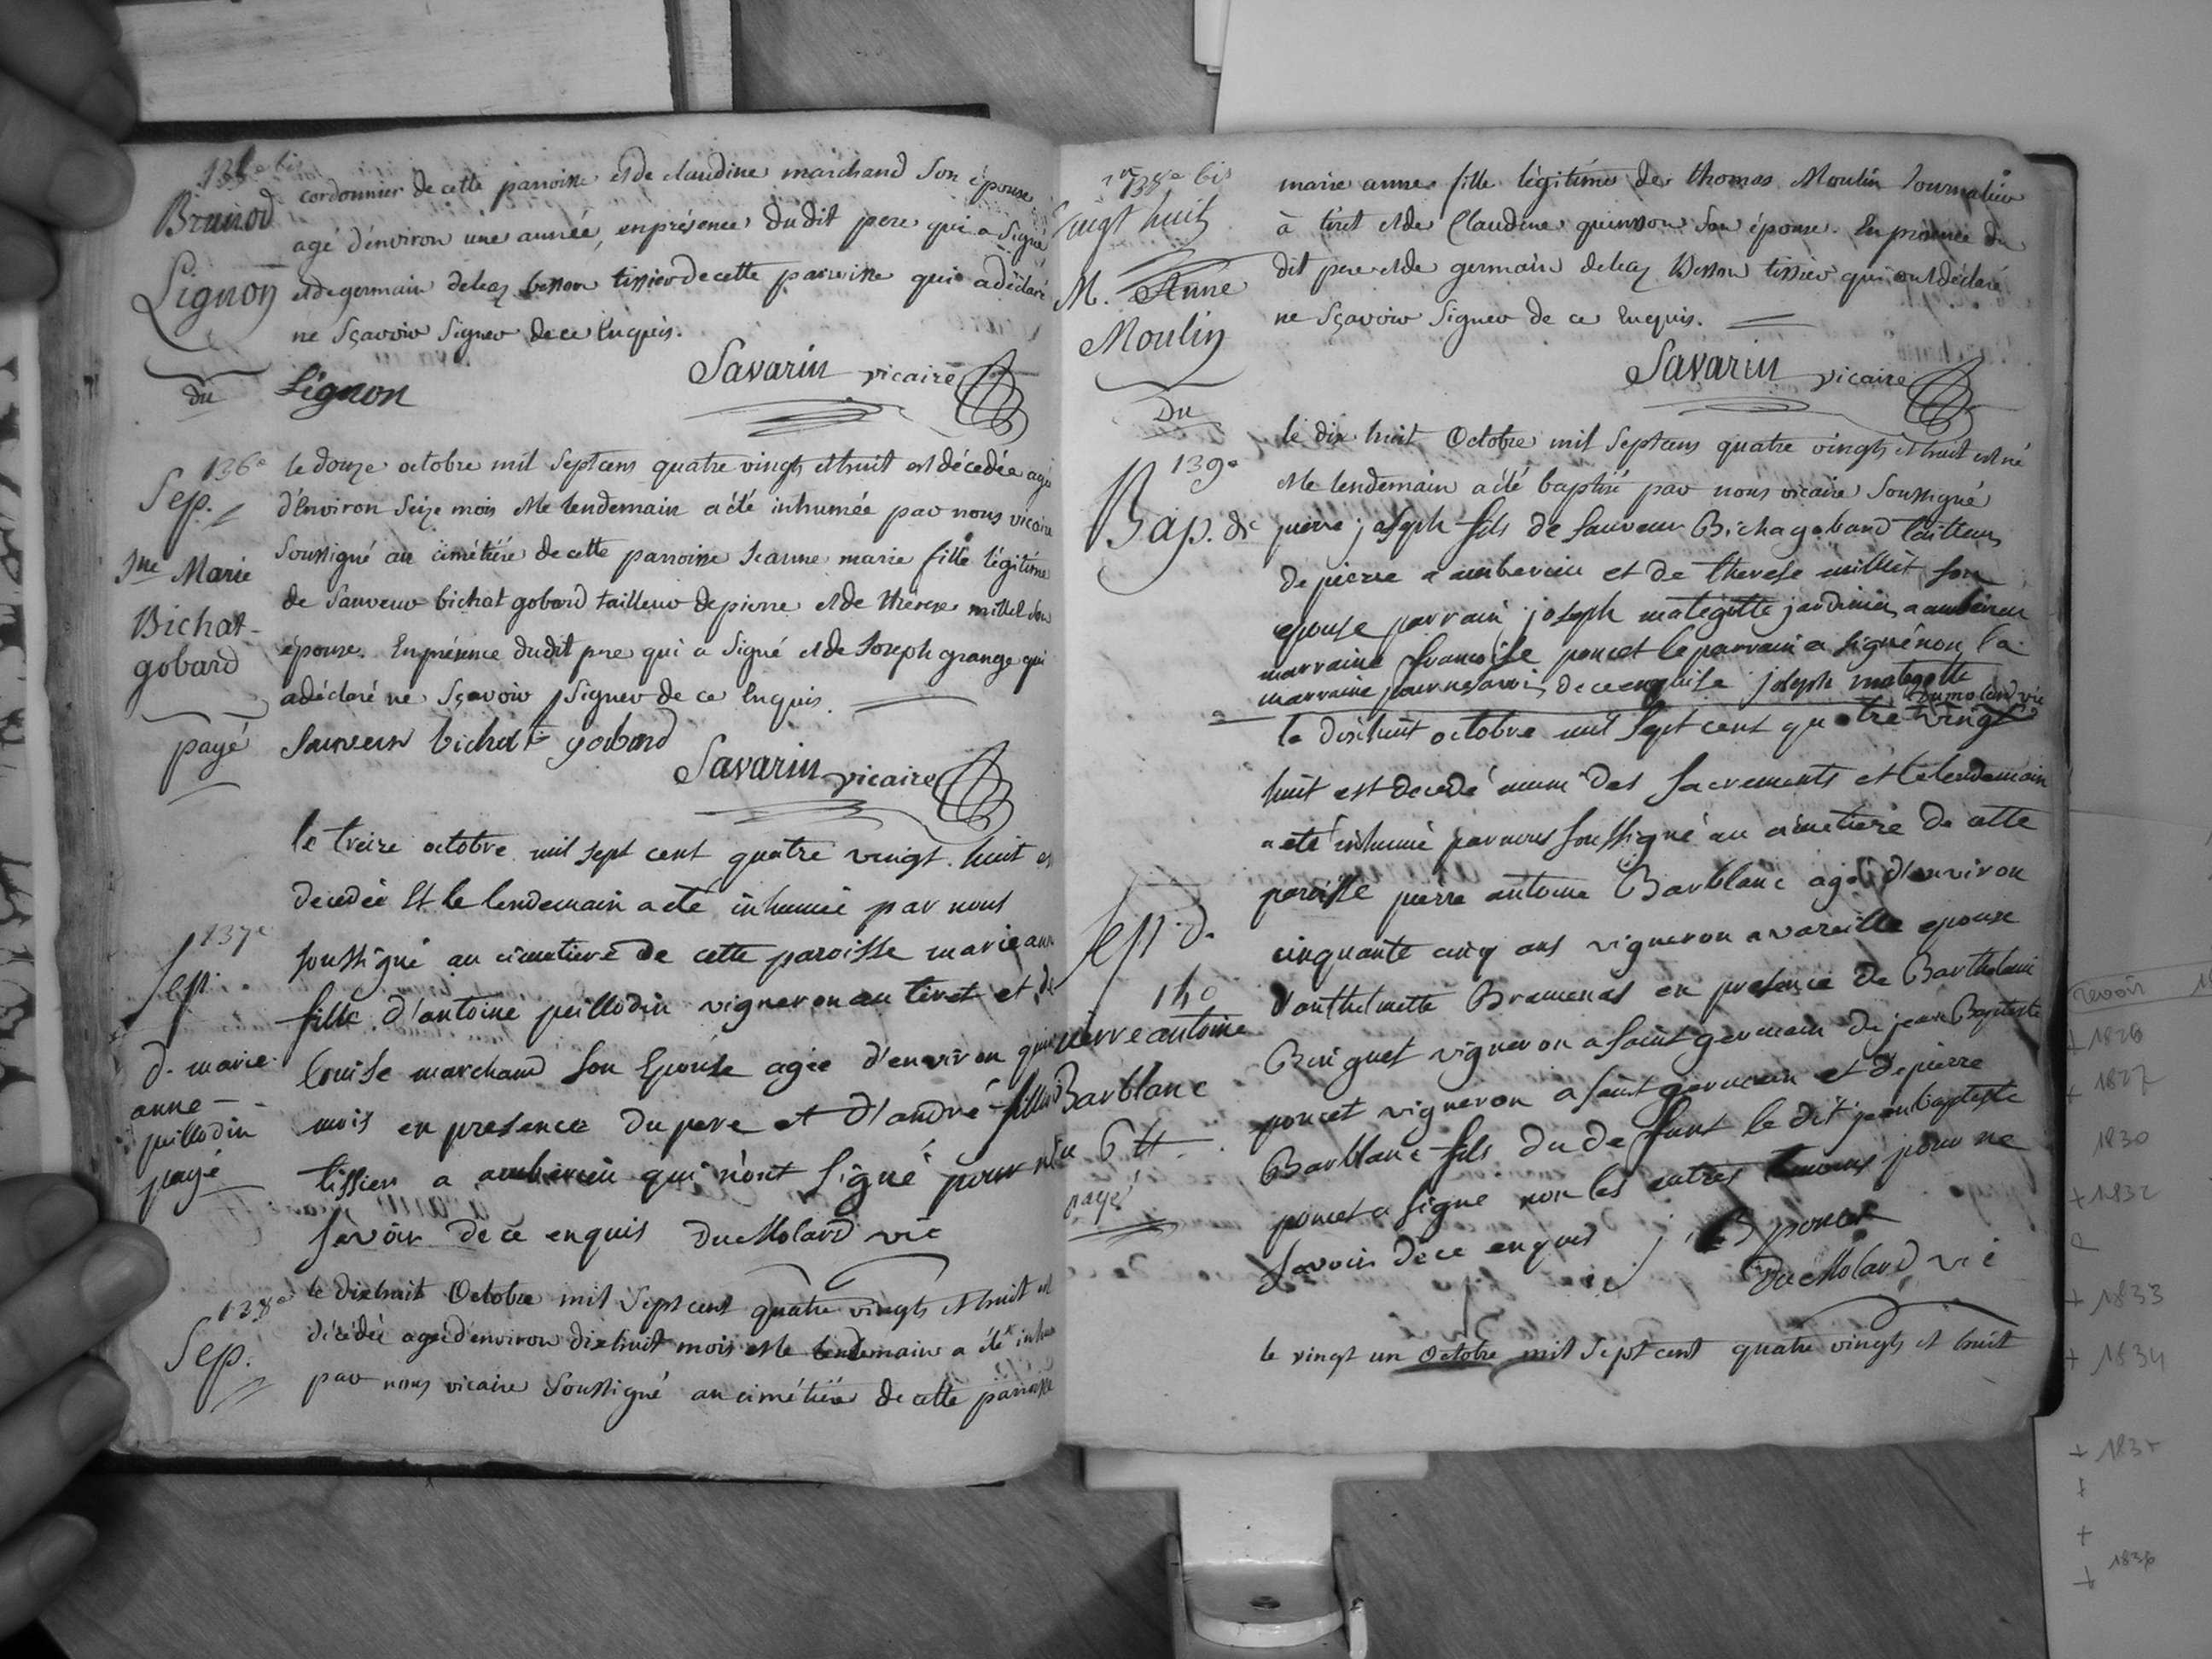 Brunod
Lignon
du
cordonnier de cette parroisse et de claudine marchand son épouse
agé d'environ une année, en présence du dit pere qui a signé
et de germain deleaz besson tissier de cette parroisse qui a déclaré
ne sçavoir signer de ce enquis.
Lignon Savarin vicaire
136e
Sep.
Jne Marie
Bichat-
gobard
payé
le douze octobre mil septcens quatre vingts et huit est décedée agé
d'environ seize mois et le lendemain a été inhumée par nous vicaire
soussigné au cimétière de cette parroisse jeanne marie fille légitime
de sauveur bichat gobard tailleur de pierre et de thérese millet son
épouse. En présence dudit pere qui a signé et de Joseph grange qui
a déclaré ne sçavoir signer de ce enquis.
sauveur bichat gobard
Savarin vicaire
137e
sep.
d. marie
anne
peillodin
payé
le treize octobre mil sept cent quatre vingt huit es
decedée Et le lendemain a eté inhumée par nous
soussigné au cimetiere de cette paroisse marie ann
fille d'antoine peillodin vigneron au tiret et de
Louise marchand son Epouse agée d'environ quin
mois en presence du pere et d'andré
tissier a amberieu qui n'ont signé pour
savoir de ce enquis duMolard vic
138e
Sep.
le dixhuit Octobre mil Sept cent quatre vingts et huit est
décédée agée d'environ dixhuit mois et le lendemain a été inhu
par nous vicaire soussigné au cimétière de cette parroisse
138e bis
vingt huit
M. Anne
Moulin
Du
marie anne fille légitime de thomas Moulin Journalier
à tiret et de Claudine quinson son épouse. En présence du
dit pere et de germain deleaz besson tissier qui ont déclaré
ne sçavoir signer de ce enquis.
Savarin vicaire
139e
Bap. de
le dix huit Octobre mil septcens quatre vingts et huit est né
et le lendemain a été baptisé par nous vicaire soussigné
pierre joseph fils de sauveur Bichagobard tailleur
de pierre a amberieu et de therese milliet son
epouse parrain joseph mategotte jardinier a amberieu
marraine francoise poncet le parrain a signé non la
marraine pour ne savoir de ce enquise joseph mategotte
dumolard vic
le dixhuit octobre mil sept cent quatre vingt
huit est decedé muni des sacrements et le lendemain
a eté inhumé par nous soussigné au cimetiere de cette
paroisse pierre antoine Barblanc agé d'environ
cinquante cinq ans vigneron a vareille epoux
d'anthelmette Bramenas en presence de Barthelemi
Buiguet vigneron a saint germain de jean Baptiste
poncet vigneron a saint germain et de pierre
Barblanc fils du defunt le dit jean baptiste
poncet a signé non les autres temoins pour ne
savoir de ce enquis j B poncet
duMolard vic
sep. d.
140
pierre antoine
Barblanc
payé
le vingt un Octobre mil Sept cent quatre vingts et huit
revoir
+ 1826
+ 1827
1830
+ 1832
+ 1833
+ 1834
+ 1835
+
+
+ 1836